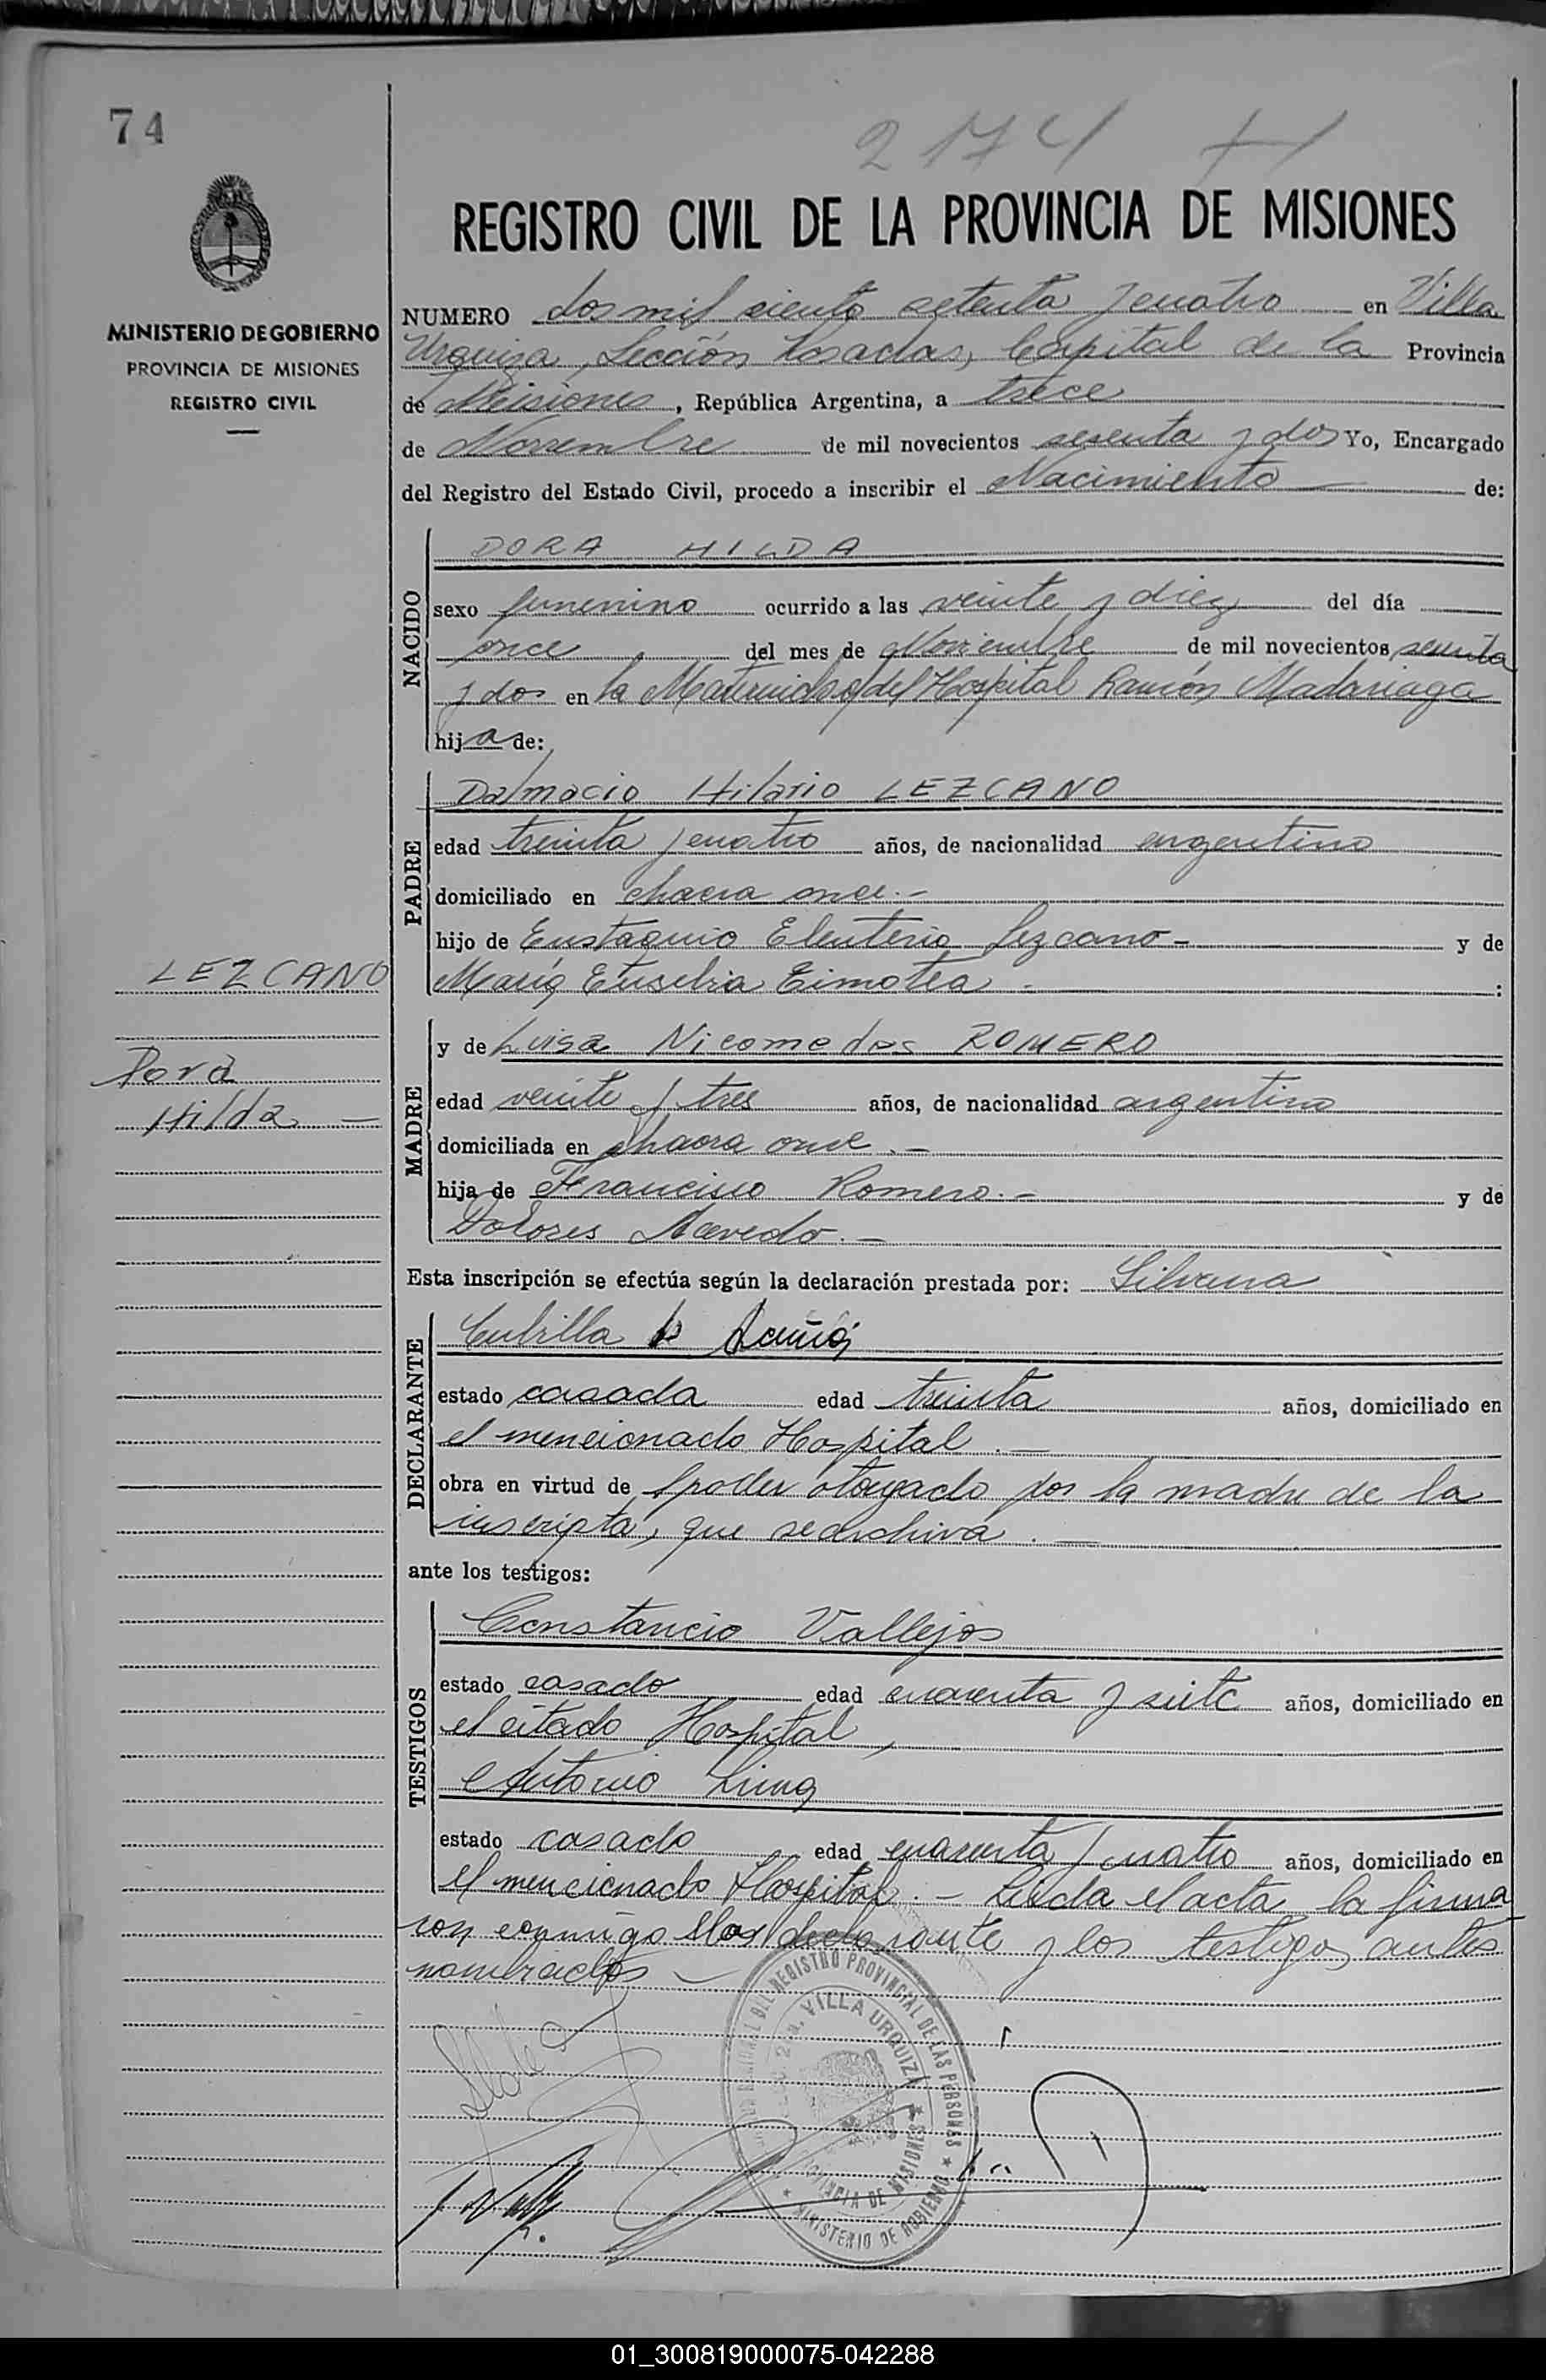 74
2174
MINISTERIO DE GOBIERNO
PROVINCIA DE MISIONES
REGISTRO CIVIL
REGISTRO CIVIL DE LA PROVINCIA DE MISIONES
NUMERO dos mil ciento setenta y cuatro en Villa
Urquiza, Sección Posadas, Capital de la Provincia
de Misiones, República Argentina, a trece
de Noviembre de mil novecientos sesenta y dos Yo, Encargado
del Registro del Estado Civil, procedo a inscribir el Nacimiento de:
NACIDO
DORA HILDA
sexo femenino ocurrido a las veinte y diez del día
once del mes de Noviembre de mil novecientos sesenta
y dos en la Maternidad del Hospital Ramón Madariaga
hija de:
PADRE
Dalmacio Hilario LEZCANO
edad treinta y cuatro años, de nacionalidad argentino
domiciliado en chacra once.-
hijo de Eustaquio Eleuterio Lezcano - y de
María Eusebia Timotea - :
LEZCANO
Dora
Hilda -
MADRE
y de Luisa Nicomedes ROMERO
edad veinte y tres años, de nacionalidad argentina
domiciliada en chacra once.-
hija de Francisco Romero.- y de
Dolores Acevedo.-
Esta inscripción se efectúa según la declaración prestada por: Silvana
DECLARANTE
Cubilla
estado casada edad treinta años, domiciliado en
el mencionado Hospital.-
obra en virtud de poder otorgado por la madre de la
inscripta, que se archiva.-
ante los testigos:
TESTIGOS
Constancio Vallejos
estado casado edad cuarenta y siete años, domiciliado en
el citado Hospital,
Antonio
estado casado edad cuarenta y cuatro años, domiciliado en
el mencionado Hospital.- Leída el acta la firma
con conmigo declarante y los testigos antes
nombrados -
DEL REGISTRO PROVINCIAL DE LAS PERSONAS
VILLA URQUIZA
PROVINCIA DE MISIONES
MINISTERIO DE GOBIERNO
01_300819000075-042288